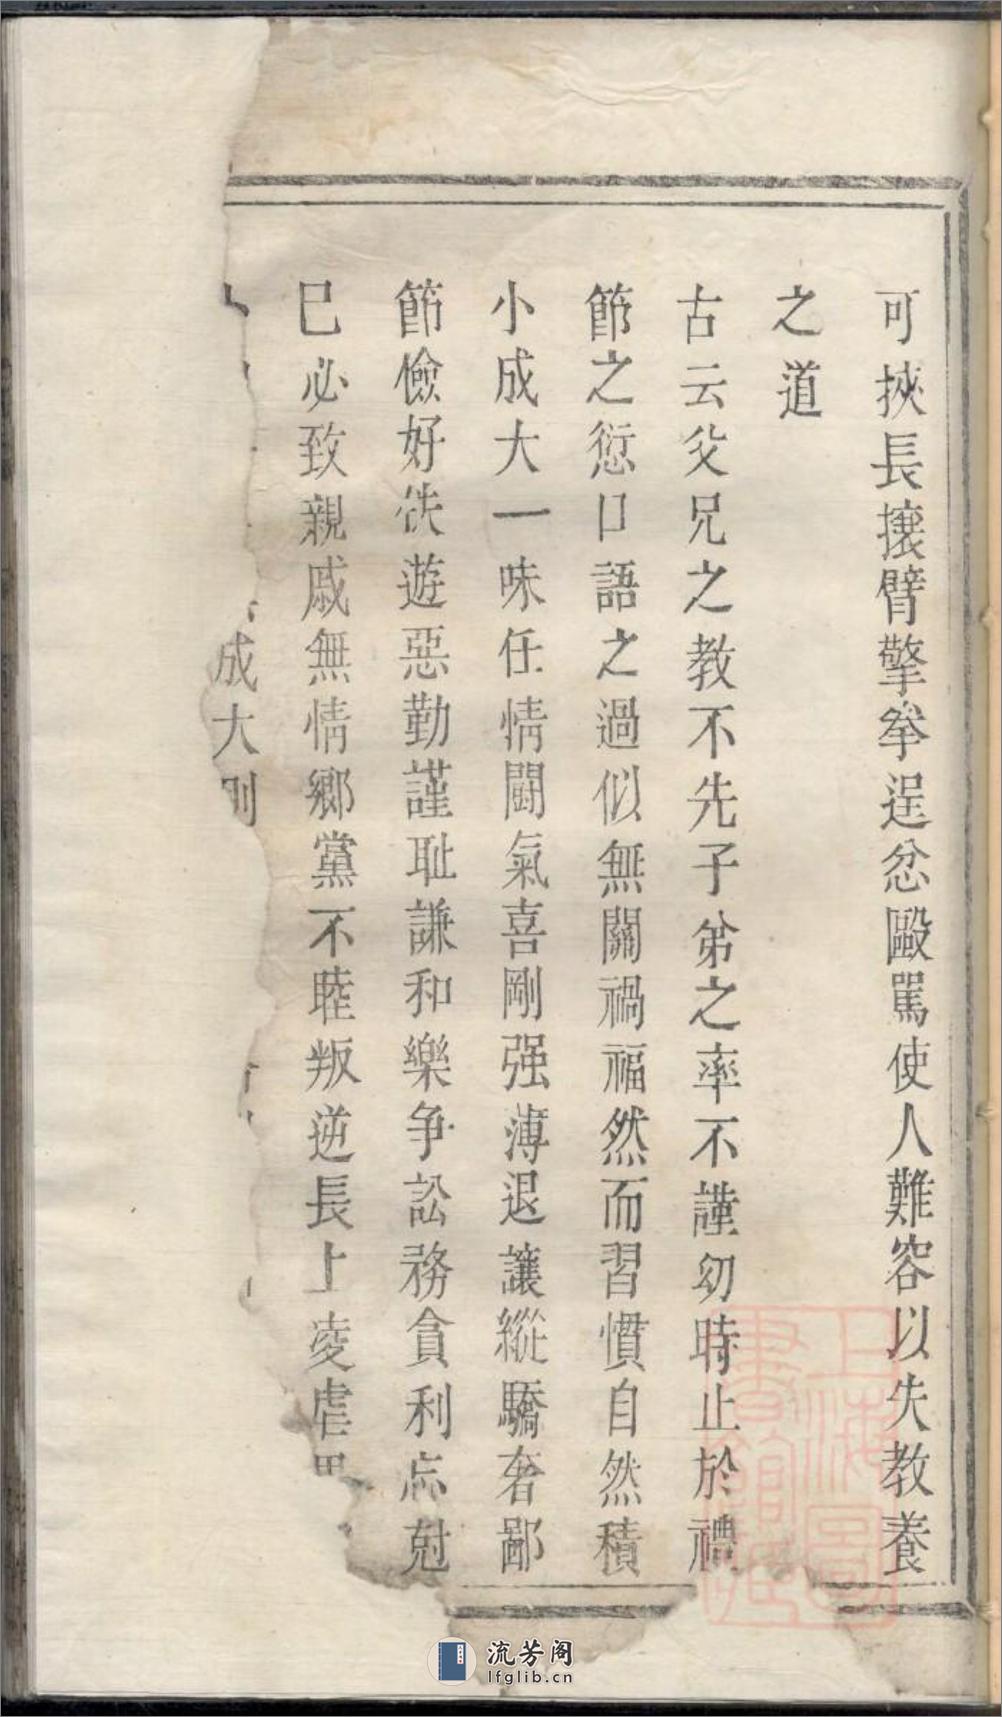 可挾長攘臂擎拳逞忿毆罵使人難容以失教養
之道
古云父兄之教不先子弟之率不謹幼時止於禮
節之愆口語之過似無關禍福然而習慣自然積
小成大一味任情鬪氣喜剛强薄退讓縱驕奢鄙
節儉好佚遊惡勤謹耻謙和樂争訟務貪利忘尅
巳必致親戚無情鄉黨不睦叛逆長上凌虐
成大則
上海圖書館藏
流芳阁
lfglib.cn